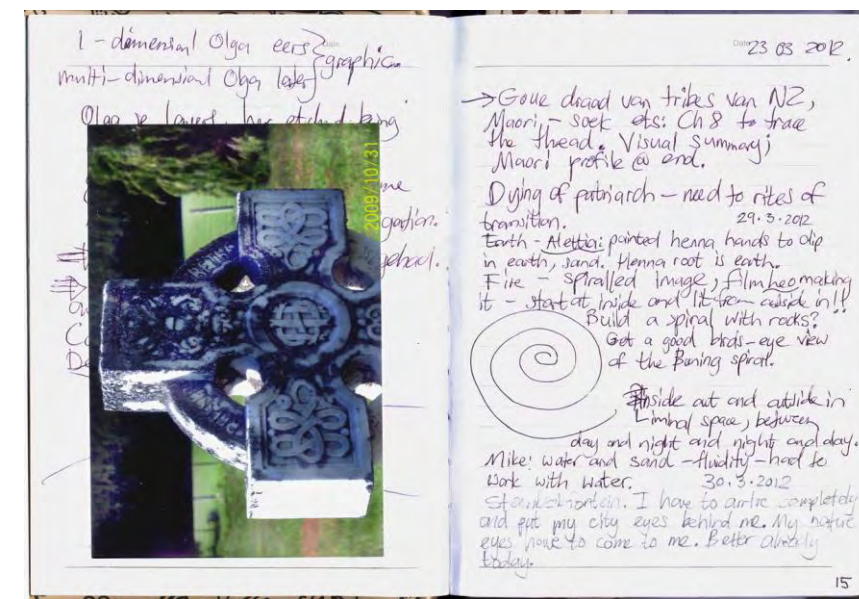 1-dimensional Olga eers
graphic
multi-dimensional Olga later
Olga se layers, her etched being
me
gation.
ehad.
2009/10/31
Date 23 03 2012
→ Goue draad van tribes van NZ,
Maori, - soek ets: Ch 8 to trace
the thead. Visual Summary;
Maori profile @ end.
Dying of patriarch - need to rites of
transition. 29.3.2012
Earth - Alettia: painted henna hands to dip
in earth, sand. Henna root is earth.
Fire - spiralled image, film heo making
it - start at inside and lit from outside in!!
Build a spiral with rocks?
Get a good birds-eye view
of the Buning spiral.
Inside out and outside in
Limbal space, between
day and night and night and day.
Mike: water and sand - fluidity - had to
work with water. 30.3.2012
I have to arrive completely
and put my city eyes behind me. My nature
eyes have to come to me. Better already
today.
15